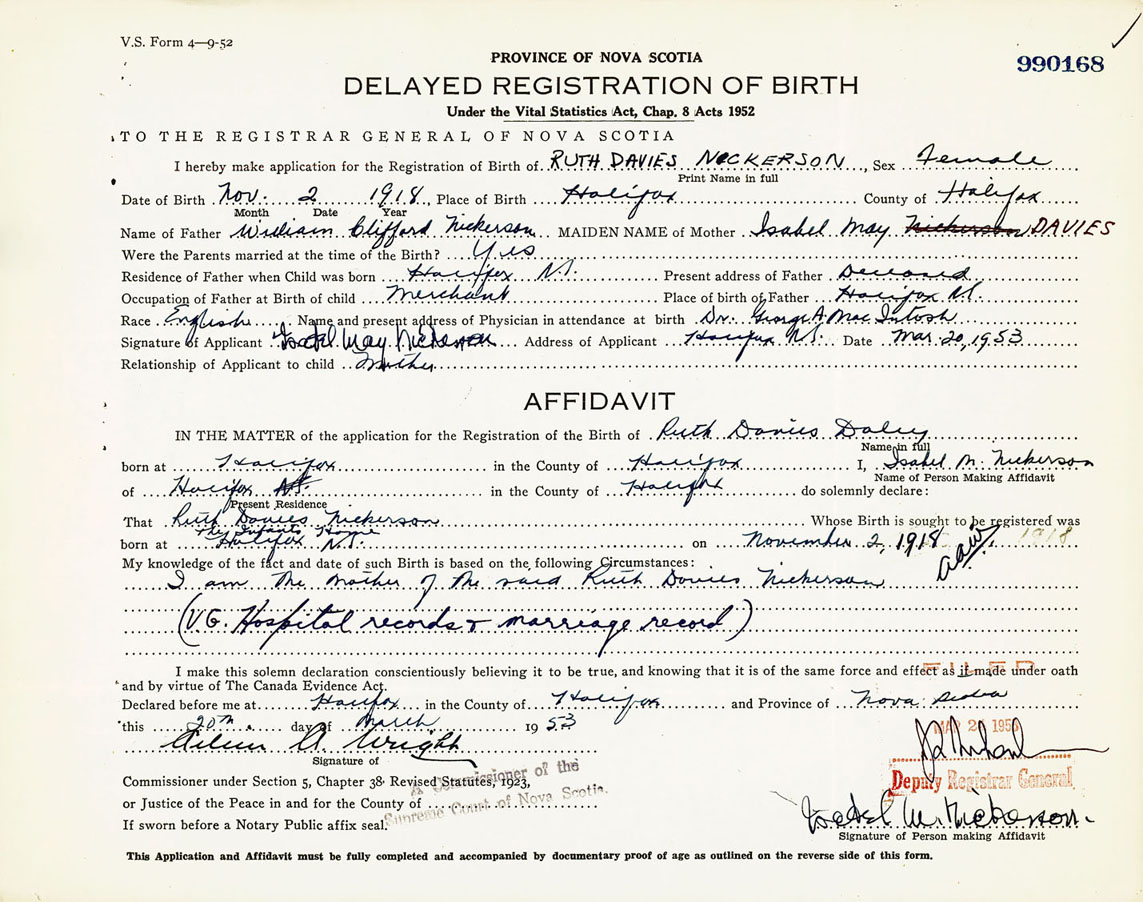 V.S. Form 4—9-52
PROVINCE OF NOVA SCOTIA
990168
DELAYED REGISTRATION OF BIRTH
Under the Vital Statistics Act, Chap. 8 Acts 1952
TO THE REGISTRAR GENERAL OF NOVA SCOTIA
I hereby make application for the Registration of Birth of RUTH DAVIES NICKERSON, Sex Female
Print Name in full
Date of Birth Nov. 2 1918, Place of Birth Halifax County of Halifax
Month Date Year
Name of Father William Clifford Nickerson MAIDEN NAME of Mother Isabel May Nickerson DAVIES
Were the Parents married at the time of the Birth? Yes
Residence of Father when Child was born Halifax N.S. Present address of Father Deceased
Occupation of Father at Birth of child Merchant Place of birth of Father Halifax N.S.
Race English Name and present address of Physician in attendance at birth Dr. George A. MacIntosh
Signature of Applicant Isabel May Nickerson Address of Applicant Halifax N.S. Date Mar. 20, 1953
Relationship of Applicant to child Mother
AFFIDAVIT
IN THE MATTER of the application for the Registration of the Birth of Ruth Davies Daley
Name in full
born at Halifax in the County of Halifax I, Isabel M. Nickerson
Name of Person Making Affidavit
of Halifax N.S. in the County of Halifax do solemnly declare:
Present Residence
That Ruth Davies Nickerson Whose Birth is sought to be registered was
The Infants Home
born at Halifax N.S. on November 2, 1918 1918
aaw
My knowledge of the fact and date of such Birth is based on the following Circumstances:
I am the mother of the said Ruth Davies Nickerson
(V.G. Hospital records & marriage record)
I make this solemn declaration conscientiously believing it to be true, and knowing that it is of the same force and effect as if made under oath
and by virtue of The Canada Evidence Act.
Declared before me at Halifax in the County of Halifax and Province of Nova Scotia
this 20th day of March 1953
Aileen A. Wright
Signature of
Commissioner under Section 5, Chapter 38 Revised Statutes, 1923,
A Commissioner of the
or Justice of the Peace in and for the County of
Supreme Court of Nova Scotia.
If sworn before a Notary Public affix seal.
FILED
MAR 2 1953
Deputy Registrar General
Isabel M. Nickerson
Signature of Person making Affidavit
This Application and Affidavit must be fully completed and accompanied by documentary proof of age as outlined on the reverse side of this form.